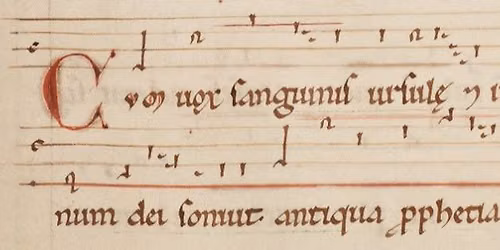 Cvm uox sanguinis ursulę ⁊ i
num dei sonuit antiqua ꝓphetia